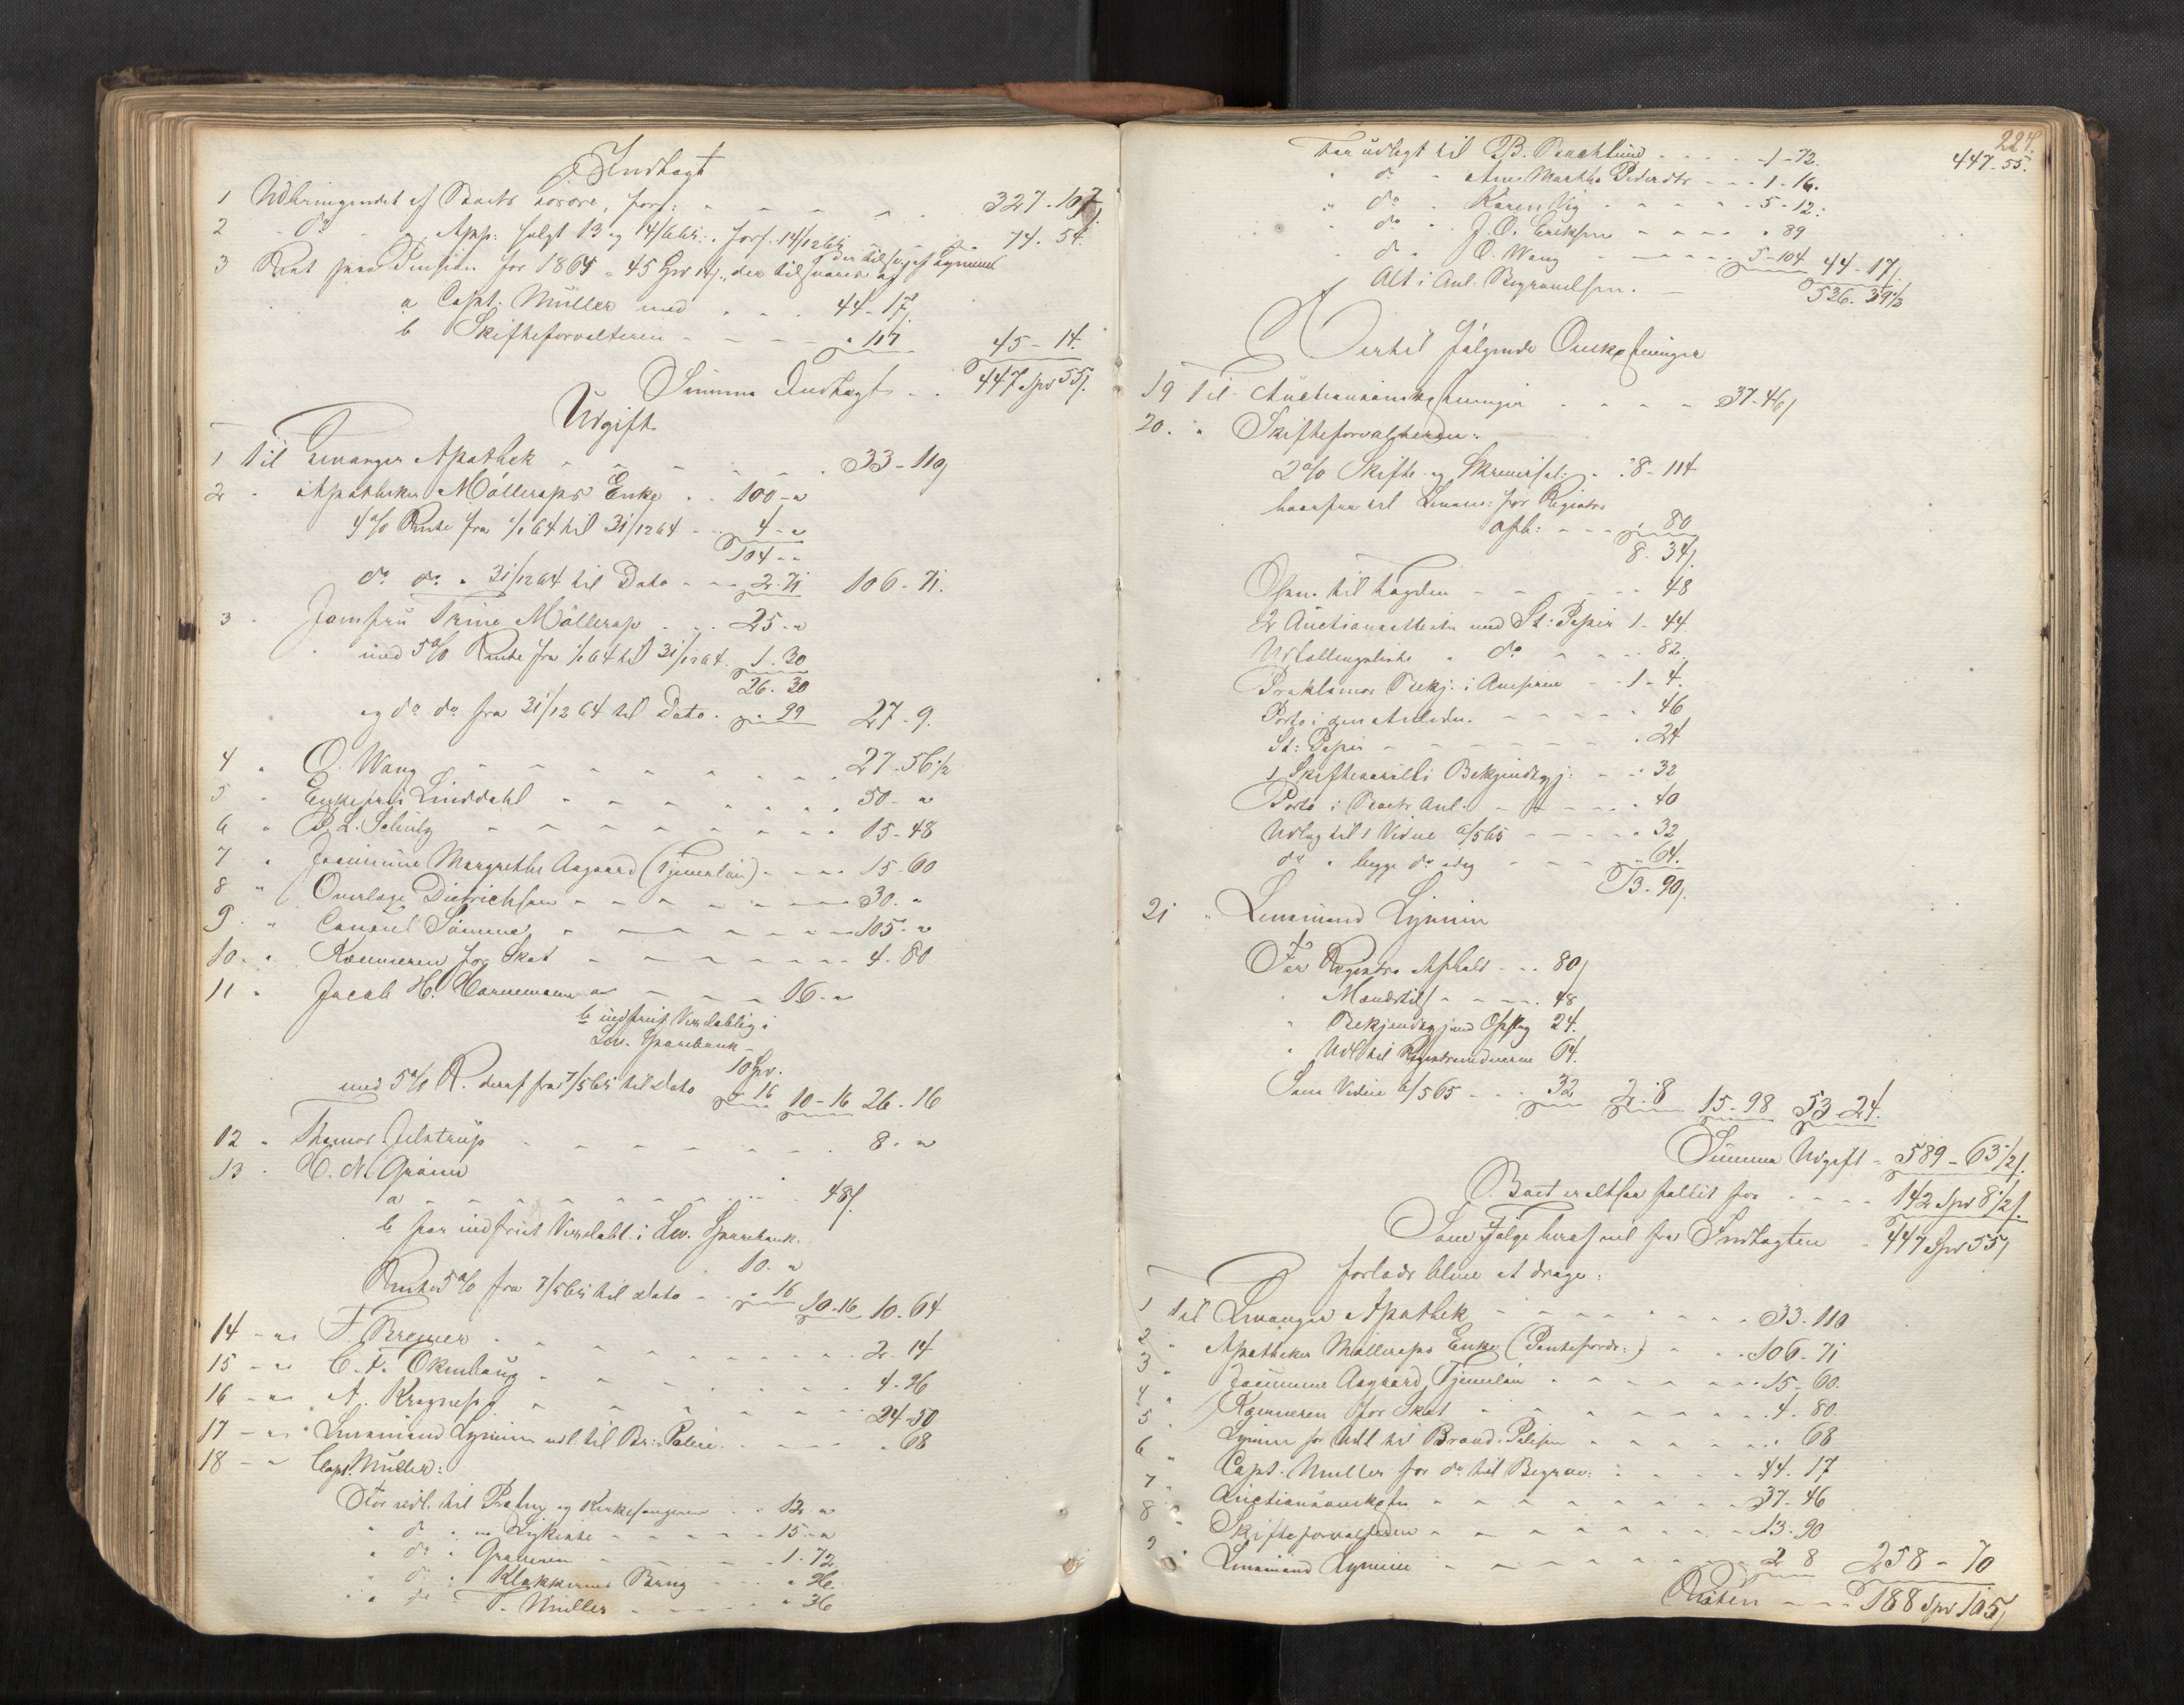 Indtægt
1 Udbringendet af Boets Løsøre, forf: 327-107
2 - do - App: solgt 13 og 14/6 65. forf. 14/12 65 74. 54.
3 Rest paa Pension for 1865 45 Spd 14 s, der tilsvares af
a Capt. Müller med 44-17
b Skifteforvalteren " 117 45-14.
Summa Indtægt 447 Spd 55 s.
Udgift
1 Til Levanger Apothek 33-110
2 " Apotheker Möllerops Enke 100-"
4% Rente fra 1/1 64 til 31/12 64 4-"
104--
do do " 31/12 64 til Dato 2-71 106-71.
3 " Jomfru Trine Möllerop 25-"
med 5% Rente fra 1/1 64 til 31/12 64. 1. 30
26. 30
og do do fra 31/12 64 til Dato. " 99 27-9.
4 " O. Wang 27-56 1/2
5 " Enkefru Linddahl 50-"
6 " P. L. Schulz 15-48
7 " Jacumine Margrethe Aagaard (Tjenerløn) 15-60
8 " Overlæge Dietrichson 30-"
9 " Consul Sömme 105-"
10 " Kæmneren for Skat 4-80
11 " Jacob H. Hornemann a 16-"
b indfriet Vexelobligj
Lev. Sparebank
10 Spd.
med 5% R. deraf fra 7/5 65 til Dato " 16 10-16 26-16
12 " Thomas Jelstrup 8-"
13 " H. N. Grønn
a 48 s.
b for indfriet Vexelobl. i Lev. Sparebank.
10-"
Renter 5% fra 7/5 65 til Dato " 16 10-16 10-64
14 - " F. Brenner 2-14
15 - " C. F. Okenhaug 4-96
16 - " A. Kragness 24-50
17 - " Lensmand Lynum udl. til Br: Police " 68
18 - " Capt. Müller:
For udl. til Præsten og Kirkesangeren 12 "
" do " Ligkiste 15-"
" do " Graveren 1-72.
" do " Klokkernes Bærug " 96
" do " T. Müller " 36
224.
For udlagt til B. Buchlund 1-72. 447-55.
" do " Ane Martha Pedersdtr 1-16.
" do " Karen Vig 5-12.
" do " J. O. Eriksen " 89
" do " O. Wang 5-104 44-17
Alt i Anl. Begravelsen. 536. 39 1/2
Hertil følgende Omkostninger
19 Til Auctionsomkostninger 37-46
20. " Skifteforvalteren:
2% Skifte og Skriversal: 8-114
herfra til Lensm: for Registr.
afh: " 80
8-34
Opsn. til Lagden 48
2 Auctionsattester med St: Papir 1-44
Udlodningsliste " do 82
Proklamas Bekj. i Avisene 1-4.
Porto i gjen Anledn. 46
St: Papir 24
1 Skiftesamlings Bekjendtgj: 32
Porto i Boets Anl. 40
Udlæg til 1 Vidne 6/5 65 32
do " begge do idag 64.
13-90
21 " Lensmand Lynum
For Registre Afhold 80
" Mandstils 48
" Bekjendtgj. ved Opslag 24.
" Udl. til Registrervidnerne 64.
Som Vidne 6/5 65 32 2-8 15-98 53-24.
Summa Udgift 589-63 1/2
Boet er altsaa fallit for 142 Spd 8 1/2
Som Følge heraf vil fra Indtægten 447 Spd 55
forlods blive at drage:
1 til Levanger Apothek 33-110
2 " Apotheker Möllerops Enke (Pantefordr:) 106-71
3 " Jacumine Aagaard, Tjenerløn 15-60.
4 " Kæmneren for Skat 4-80
5 " Lynum for Udl. til Brand-Policen " 68
6 " Capt. Müller for do til Begrav: 44-17
7 " Auctionsomkostn. 37-46
8 " Skifteforvalteren 13-90
9 " Lensmand Lynum 2-8 258-70
Resten 188 Spd 105